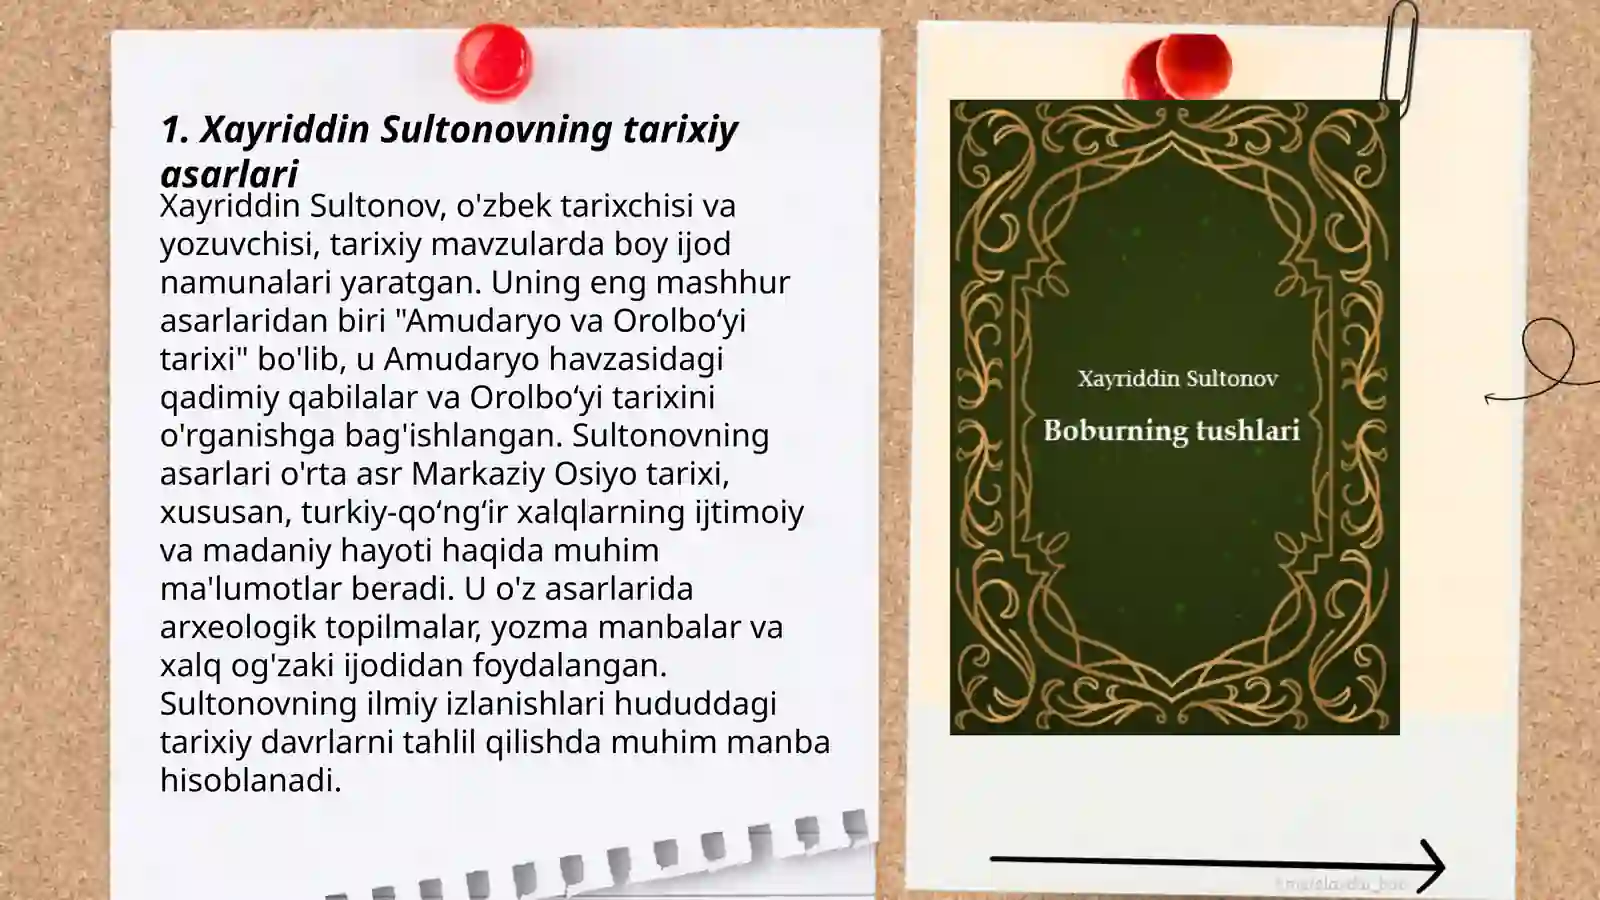 1. Xayriddin Sultonovning tarixiy
asarlari
Xayriddin Sultonov, o'zbek tarixchisi va
yozuvchisi, tarixiy mavzularda boy ijod
namunalari yaratgan. Uning eng mashhur
asarlaridan biri "Amudaryo va Orolbo‘yi
tarixi" bo'lib, u Amudaryo havzasidagi
qadimiy qabilalar va Orolbo‘yi tarixini
o'rganishga bag'ishlangan. Sultonovning
asarlari o'rta asr Markaziy Osiyo tarixi,
xususan, turkiy-qo‘ng‘ir xalqlarning ijtimoiy
va madaniy hayoti haqida muhim
ma'lumotlar beradi. U o'z asarlarida
arxeologik topilmalar, yozma manbalar va
xalq og'zaki ijodidan foydalangan.
Sultonovning ilmiy izlanishlari hududdagi
tarixiy davrlarni tahlil qilishda muhim manba
hisoblanadi.
Xayriddin Sultonov
Boburning tushlari